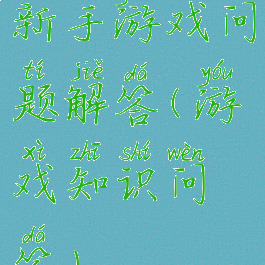 新手游戏问
tí jiě dá yóu
题解答(游
xì zhī shí wèn
戏知识问
dá
答)